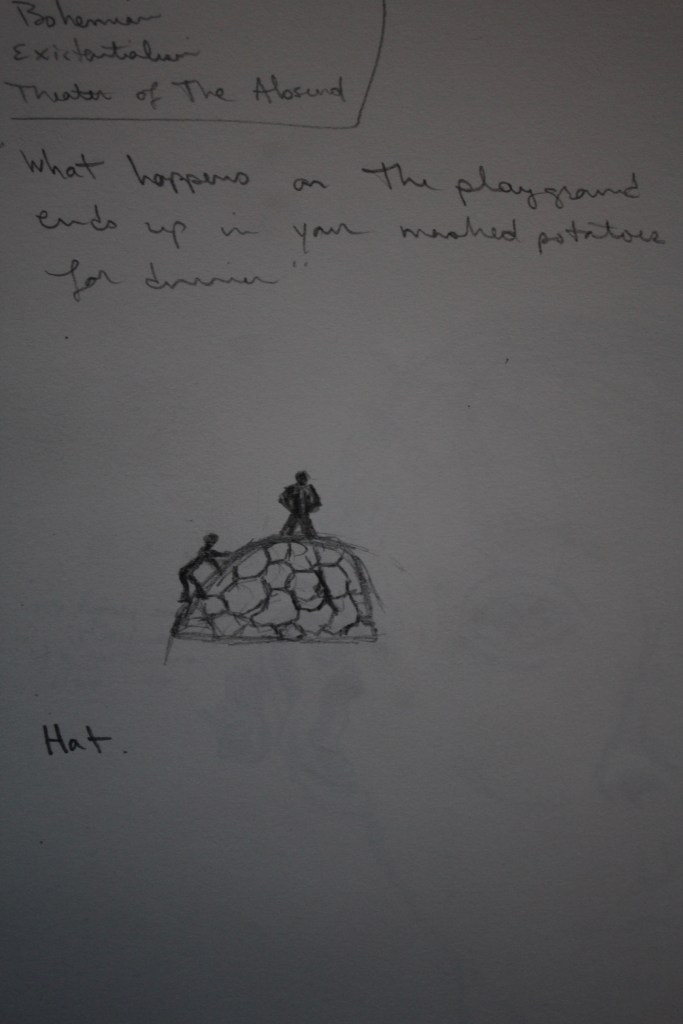 Bohemian
Existentialism
Theater of The Absurd
"What happens on The playground
ends up in your mashed potatoes
for dinner"
Hat.